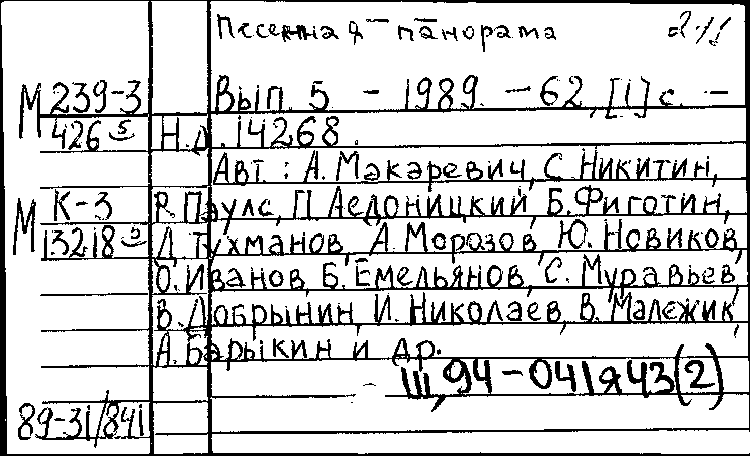 Песенная панорама 2-11
М 239-3 Вып. 5 - 1989. - 62, [1] с. -
426 5 Н.д. 14268.
Авт.: А. Макаревич, С. Никитин,
М К-3 Р. Паулс, П. Аедоницкий, Б. Фиготин,
13218 5 Д. Тухманов, А. Морозов, Ю. Новиков,
О. Иванов, Б. Емельянов, С. Муравьев,
В. Добрынин, И. Николаев, В. Малежик,
А. Барыкин и др.
Щ,94-041я43(2)
89-31/841